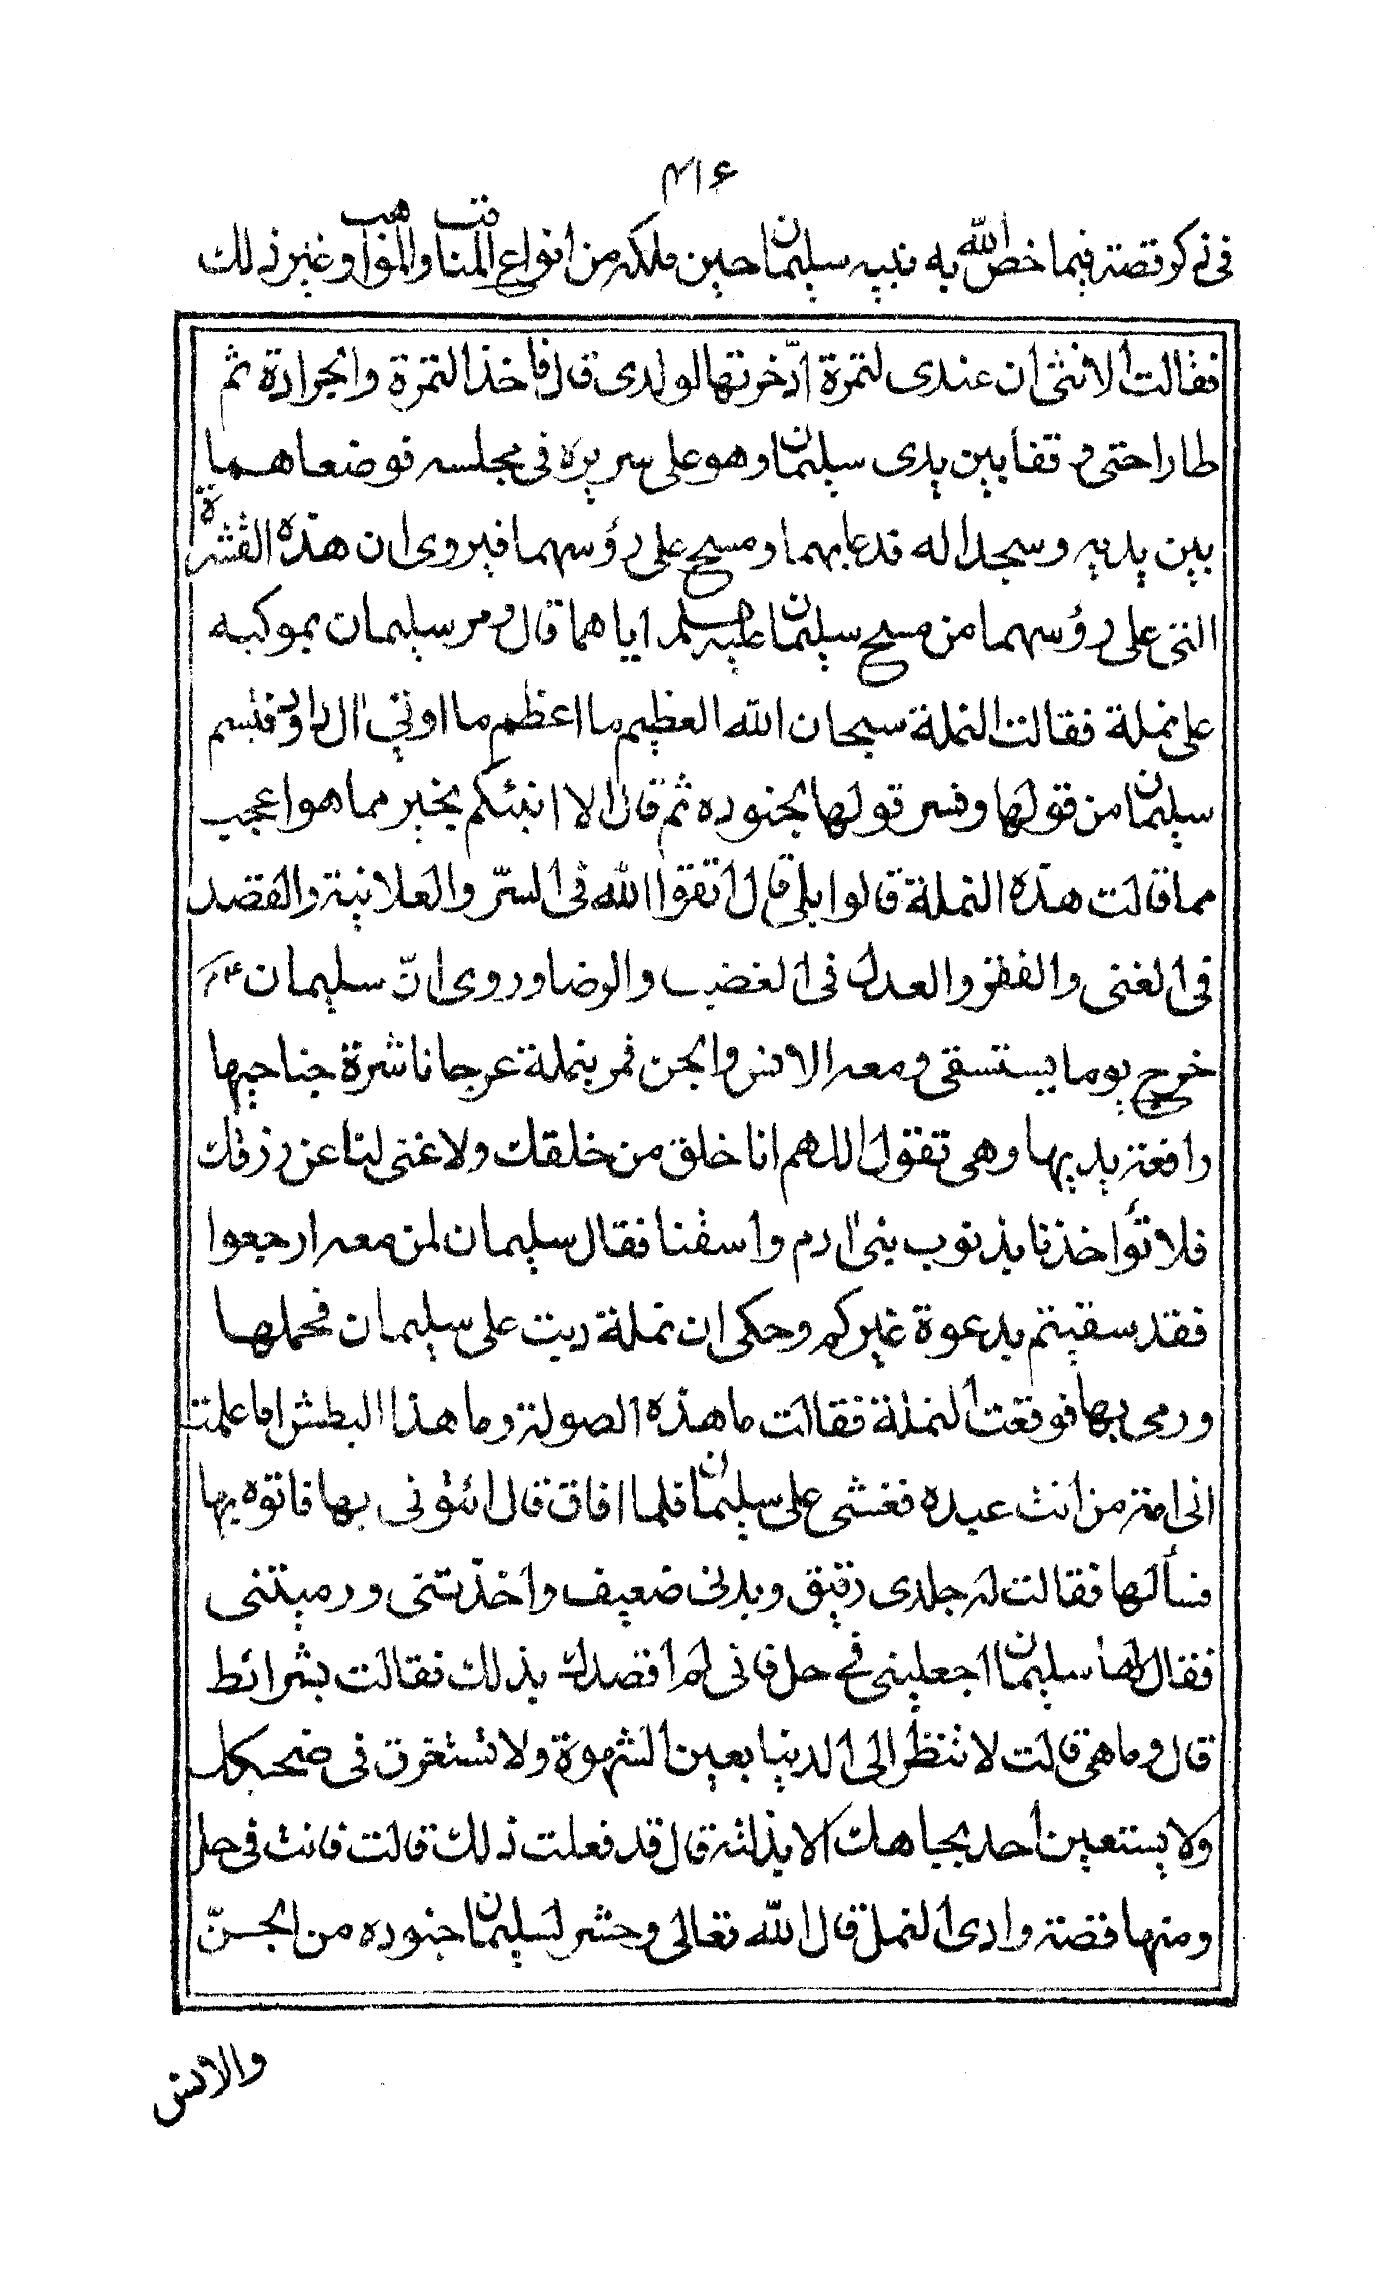 ۴۱۶
فی ذکر قصته فیما خص الله به نبیه سلیمان حین ملکه من انواع المناقب والمواهب وغیر ذلك
فقالت الانثی ان عندی لتمرة ادّخرتها لولدی قال فاخذ التمرة والجرادة ثم
طارا حتی وقفا بین یدی سلیمان وهو علی سریره فی مجلسه فوضعاهما
بین یدیه وسجدا له فدعا بهما ومسح علی رؤسهما فیروی ان هذه القشرة
التی علی رؤسهما من مسح سلیمان علیه السلم ایاهما قال ومر سلیمان بموکبه
علی نملة فقالت النملة سبحان الله العظیم ما اعظم ما اوتی اٰل داود فتبسم
سلیمان من قولها وفسر قولها لجنوده ثم قال الا انبئکم بخبر مما هو اعجب
مما قالت هذه النملة قالوا بلی قال اتقوا الله فی السرّ والعلانیة والقصد
فی الغنی والفقر والعدل فی الغضب والرضا وروی انّ سلیمان ع
خرج یوما یستسقی ومعه الانس والجن فمر بنملة عرجا ناشرة جناحیها
رافعة یدیها وهی تقول اللهم انا خلق من خلقك ولا غنی لنا عن رزقك
فلا تؤاخذنا بذنوب بنی اٰدم واسقنا فقال سلیمان لمن معه ارجعوا
فقد سقیتم بدعوة غیرکم وحکی ان نملة دبت علی سلیمان فحملها
ورمی بها فوقعت النملة فقالت ما هذه الصولة وما هذا البطش اما علمت
انی امة من انت عبده فغشی علی سلیمان فلما افاق قال ائتونی بها فاتوه بها
فسألها فقالت له جلدی رقیق وبدنی ضعیف واخذتنی ورمیتنی
فقال لها سلیمان اجعلینی فی حل فانی لم اقصدك بذلك فقالت بشرائط
قال وما هی قالت لا تنظر الی الدنیا بعین الشهوة ولا تستغرق فی ضحکك
ولا یستعین احد بجاهك الا بذلته قال قد فعلت ذلك قالت فانت فی حل
ومنها قصة وادی النمل قال الله تعالی وحشر لسلیمان جنوده من الجنّ
والانس